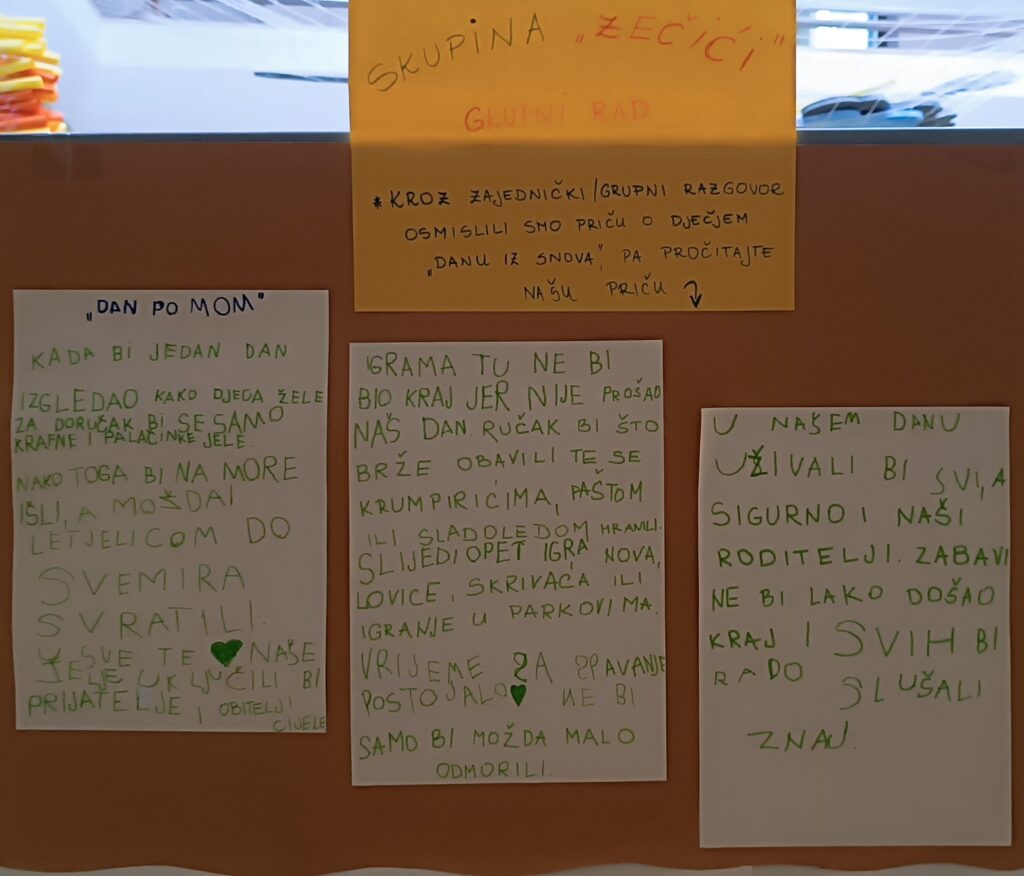 SKUPINA „ZEČIĆI"
GRUPNI RAD
* KROZ ZAJEDNIČKI/GRUPNI RAZGOVOR
OSMISLILI SMO PRIČU O DJEČJEM
„DANU IZ SNOVA", PA PROČITAJTE
NAŠU PRIČU
„DAN PO MOM"
KADA BI JEDAN DAN
IZGLEDAO KAKO DJECA ŽELE
ZA DORUČAK BI SE SAMO
KRAFNE I PALAČINKE JELE.
NAKO TOGA BI NA MORE
IŠLI, A MOŠDA I
LETJELICOM DO
SVEMIRA
SVRATILI.
U SVE TE NAŠE
ŽELJE UKLJUČILI BI
PRIJATELJE I OBITELJI
CIJELE
IGRAMA TU NE BI
BIO KRAJ JER NIJE PROŠAO
NAŠ DAN. RUČAK BI ŠTO
BRŽE OBAVILI TE SE
KRUMPIRIĆIMA, PAŠTOM
ILI SLADOLEDOM HRANILI.
SLIJEDI OPET IGRA NOVA,
LOVICE, SKRIVAĆA ILI
IGRANJE U PARKOVIMA.
VRIJEME ZA SPAVANJE
POSTOJALO NE BI
SAMO BI MOŽDA MALO
ODMORILI.
U NAŠEM DANU
UŽIVALI BI SVI, A
SIGURNO I NAŠI
RODITELJI. ZABAVI
NE BI LAKO DOŠAO
KRAJ I SVIH BI
RADO
SLUŠALI
ZNAJ.